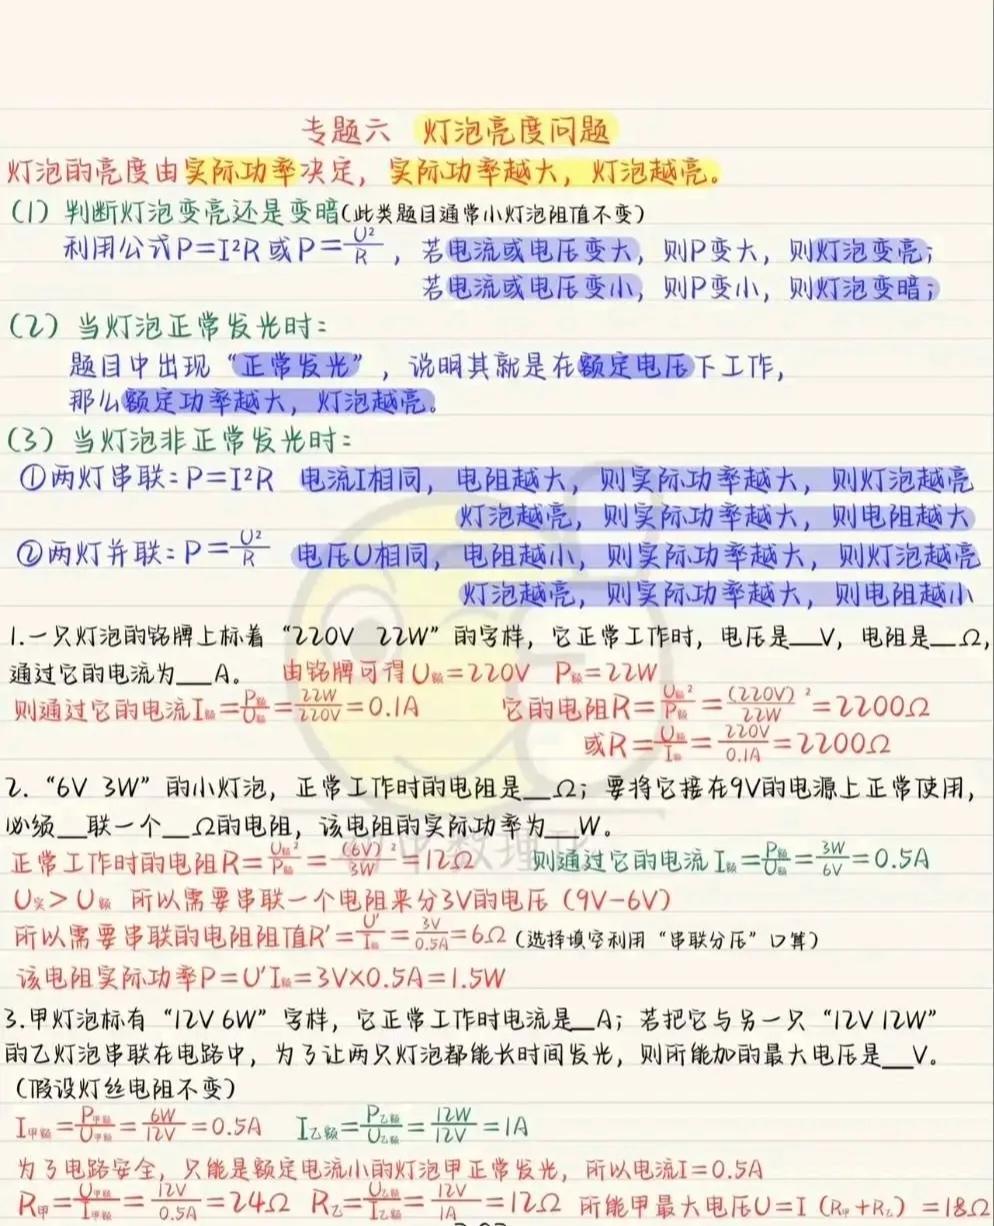 专题六 灯泡亮度问题
灯泡的亮度由实际功率决定，实际功率越大，灯泡越亮。
(1) 判断灯泡变亮还是变暗(此类题目通常小灯泡阻值不变)
利用公式P=I²R或P=U²/R，若电流或电压变大，则P变大，则灯泡变亮；
若电流或电压变小，则P变小，则灯泡变暗；
(2) 当灯泡正常发光时：
题目中出现“正常发光”，说明其就是在额定电压下工作，
那么额定功率越大，灯泡越亮。
(3) 当灯泡非正常发光时：
①两灯串联：P=I²R 电流I相同，电阻越大，则实际功率越大，则灯泡越亮
灯泡越亮，则实际功率越大，则电阻越大
②两灯并联：P=U²/R 电压U相同，电阻越小，则实际功率越大，则灯泡越亮
灯泡越亮，则实际功率越大，则电阻越小
1.一只灯泡的铭牌上标着“220V 22W”的字样，它正常工作时，电压是__V，电阻是__Ω，
通过它的电流为__A。 由铭牌可得U额=220V P额=22W
则通过它的电流I额=P额/U额=22W/220V=0.1A 它的电阻R=U额²/P额=(220V)²/22W=2200Ω
或R=U额/I额=220V/0.1A=2200Ω
2.“6V 3W”的小灯泡，正常工作时的电阻是__Ω；要将它接在9V的电源上正常使用，
必须__联一个__Ω的电阻，该电阻的实际功率为__W。
正常工作时的电阻R=U额²/P额=(6V)²/3W=12Ω 则通过它的电流I额=P额/U额=3W/6V=0.5A
U实>U额 所以需要串联一个电阻来分3V的电压（9V-6V）
所以需要串联的电阻阻值R'=U'/I额=3V/0.5A=6Ω（选择填空利用“串联分压”口算）
该电阻实际功率P=U'I额=3V×0.5A=1.5W
3.甲灯泡标有“12V 6W”字样，它正常工作时电流是__A；若把它与另一只“12V 12W”
的乙灯泡串联在电路中，为了让两只灯泡都能长时间发光，则所能加的最大电压是__V。
（假设灯丝电阻不变）
I甲额=P甲额/U甲额=6W/12V=0.5A I乙额=P乙额/U乙额=12W/12V=1A
为了电路安全，只能是额定电流小的灯泡甲正常发光，所以电流I=0.5A
R甲=U甲额/I甲额=12V/0.5A=24Ω R乙=U乙额/I乙额=12V/1A=12Ω 所能甲最大电压U=I（R甲+R乙）=18Ω